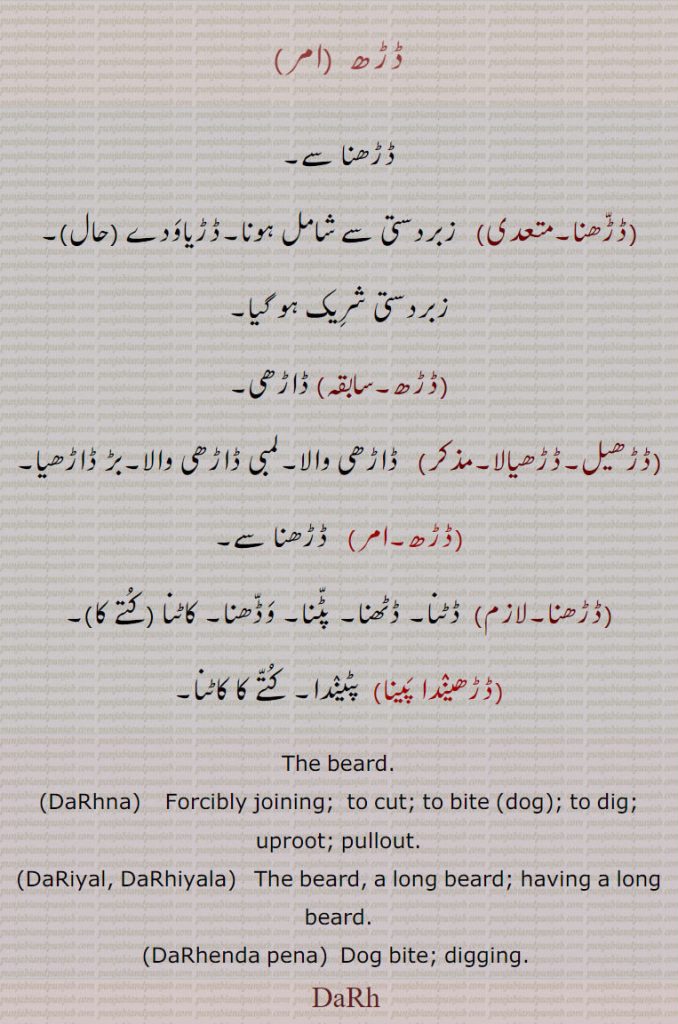 ڈڑھ (امر)
ڈڑھنا سے۔
(ڈڑّھنا۔متعدی) زبردستی سے شامل ہونا۔ڈڑیاوَدے (حال)۔
زبردستی شرِیک ہو گیا۔
(ڈڑھ۔سابقہ) ڈاڑھی۔
(ڈڑھیل۔ڈڑھیالا۔مذکر) ڈاڑھی والا۔لمبی ڈاڑھی والا۔بڑ ڈاڑھیا۔
(ڈڑھ۔امر) ڈڑھنا سے۔
(ڈڑھنا۔لازم) ڈٹنا۔ ڈٹھنا۔ پٹّنا۔ وَڈّھنا۔ کاٹنا (کُتے کا)۔
(ڈڑھین٘دا پَینا) پٹین٘دا۔ کُتّے کا کاٹنا۔
The beard.
(DaRhna) Forcibly joining; to cut; to bite (dog); to dig;
uproot; pullout.
(DaRiyal, DaRhiyala) The beard, a long beard; having a long
beard.
(DaRhenda pena) Dog bite; digging.
DaRh